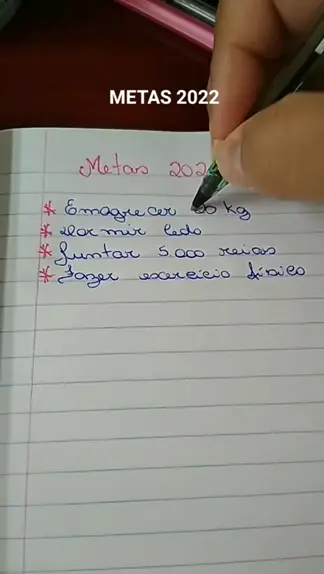 METAS 2022
Metas 202
* Emagrecer 30 kg
* dormir cedo
* Juntar 5.000 reias
* Fazer exercício físico